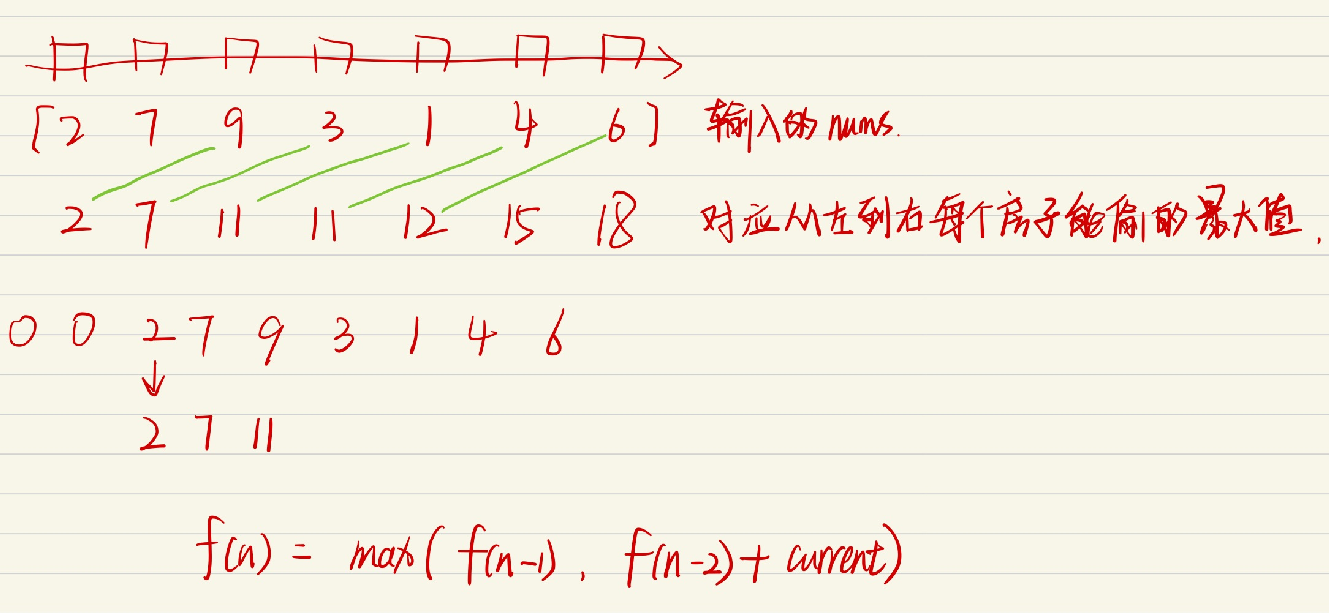 [2 7 9 3 1 4 6] 输入的nums.
2 7 11 11 12 15 18 对应从左到右每个房子能偷的最大值.
0 0 2 7 9 3 1 4 6
2 7 11
f(n) = max( f(n-1), f(n-2)+ current)